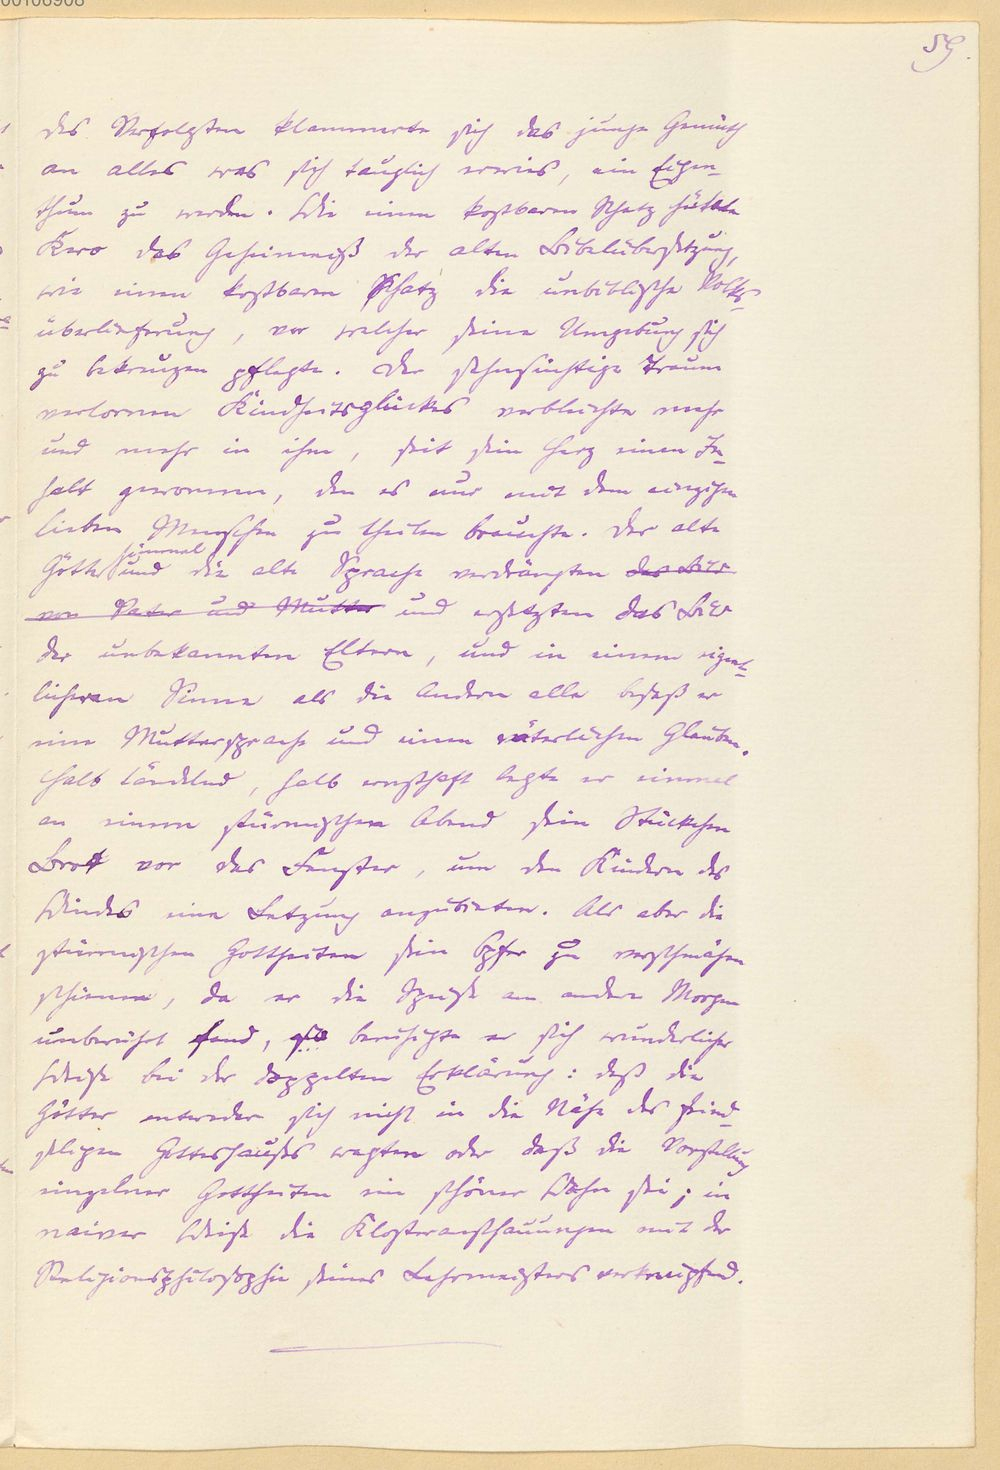 00106908
59.
des Verfolgten klammerte sich das junge Gemüth
an alles was sich tauglich erwies, ein Eigen-
thum zu werden. Wie einen kostbaren Schatz hütete
Kero das Geheimniß der alten Bibelübersetzung,
wie einen kostbaren Schatz die unbiblische Volks-
überlieferung, vor welcher seine Umgebung sich
zu bekreuzen pflegte. Der sehnsüchtige Traum
verlornen Kindheitsglückes verbleichte mehr
und mehr in ihm, seit sein Herz einen In-
halt gewonnen, den es nur mit dem einzigen
lieben Menschen zu theilen brauchte. Der alte
Götterhimmel und die alte Sprache verdrängten das Bild
von Vater und Mutter und ersetzten das Bild
der unbekannten Eltern, und in einem eigent-
licheren Sinne als die Andern alle besaß er
eine Muttersprache und einen väterlichen Glauben.
Halb tändelnd, halb ernsthaft legte er einmal
an einem stürmischen Abend sein Stückchen
Brot vor das Fenster, um den Kindern des
Windes eine Letzung anzubieten. Als aber die
stürmischen Gottheiten sein Opfer zu verschmähen
schienen, da er die Speise am andern Morgen
unberührt fand, so beruhigte er sich wunderlicher
Weise bei der doppelten Erklärung: daß die
Götter entweder sich nicht in die Nähe des feind-
seligen Gotteshauses wagten oder daß die Vorstellung
einzelner Gottheiten ein schöner Wahn sei; in
naiver Weise die Klosteranschauungen mit der
Religionsphilosophie seines Lehrmeisters verknüpfend.